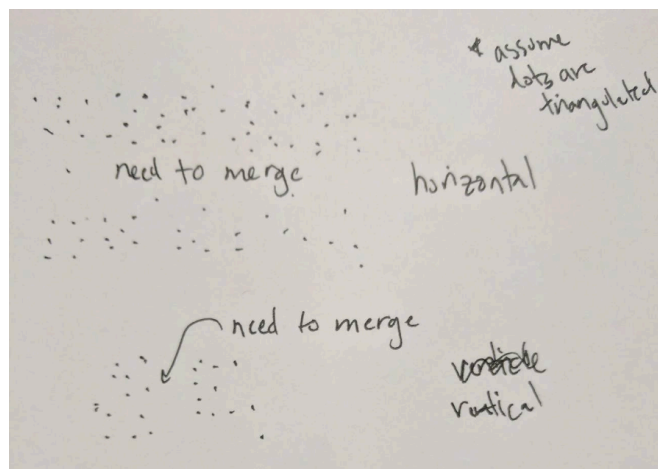 * assume
dots are
triangulated
need to merge
horizontal
need to merge
vertical